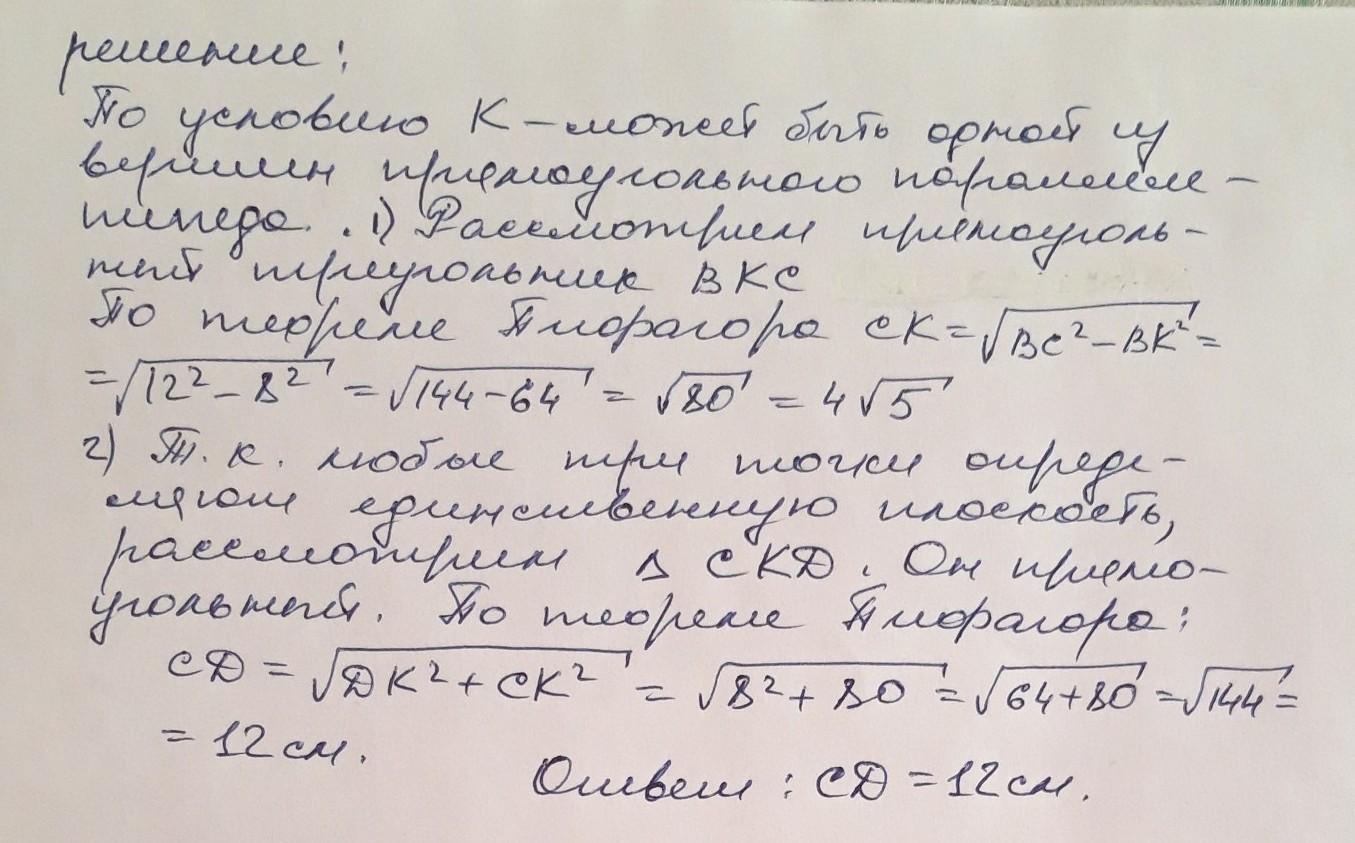 решение:
По условию К – может быть одной из
вершин прямоугольного параллеле-
пипеда. . 1) Рассмотрим прямоуголь-
ный треугольник ВКС
По теореме Пифагора СК = √(ВС² – ВК²) =
= √(12² – 8²) = √(144 – 64) = √80 = 4√5
2) Т. к. любые три точки опреде-
ляют единственную плоскость,
рассмотрим Δ СКD. Он прямо-
угольный. По теореме Пифагора:
СD = √(DК² + СК²) = √(8² + 80) = √(64+80) = √144 =
= 12 см.
Ответ : СD = 12 см.